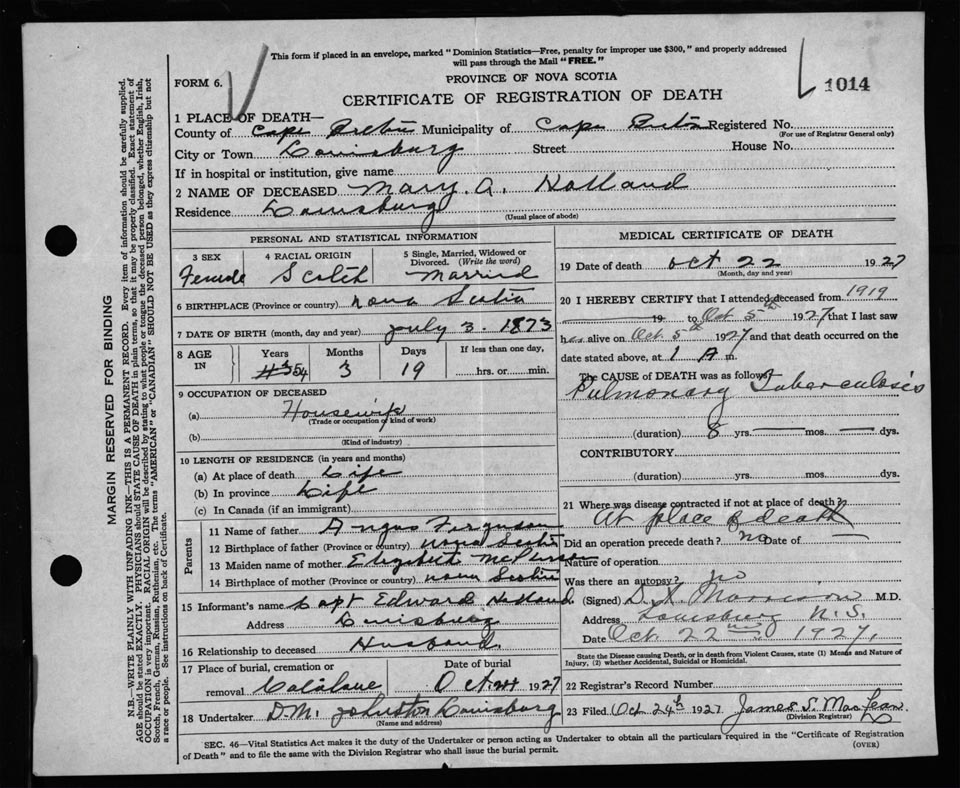 This form if placed in an envelope, marked "Dominion Statistics—Free, penalty for improper use $300," and properly addressed
will pass through the Mail "FREE."
FORM 6.
PROVINCE OF NOVA SCOTIA
1014
CERTIFICATE OF REGISTRATION OF DEATH
1 PLACE OF DEATH—
County of Cape Breton Municipality of Cape Breton Registered No.
(For use of Registrar General only)
City or Town Louisburg Street House No.
If in hospital or institution, give name
2 NAME OF DECEASED Mary. A. Holland
Residence Louisburg
(Usual place of abode)
PERSONAL AND STATISTICAL INFORMATION
3 SEX 4 RACIAL ORIGIN 5 Single, Married, Widowed or
Divorced. (Write the word)
Female Scotch Married
6 BIRTHPLACE (Province or country) Nova Scotia
7 DATE OF BIRTH (month, day and year) July 3. 1873
8 AGE IN Years Months Days If less than one day,
54 3 19 hrs. or min.
9 OCCUPATION OF DECEASED
(a) Housewife
(Trade or occupation of kind of work)
(b)
(Kind of industry)
10 LENGTH OF RESIDENCE (in years and months)
(a) At place of death Life
(b) In province Life
(c) In Canada (if an immigrant)
Parents
11 Name of father Angus Ferguson
12 Birthplace of father (Province or country) Nova Scotia
13 Maiden name of mother Elizabeth McPherson
14 Birthplace of mother (Province or country) Nova Scotia
15 Informant's name Capt Edward Holland
Address Louisburg
16 Relationship to deceased Husband
17 Place of burial, cremation or Date of burial
removal Oct 24 1927
18 Undertaker D.M. Johnston Louisburg
(Name and address)
MEDICAL CERTIFICATE OF DEATH
19 Date of death Oct 22 1927
(Month, day and year)
20 I HEREBY CERTIFY that I attended deceased from 1919
19 to Oct 5th 1927 that I last saw
her alive on Oct 5th 1927 and that death occurred on the
date stated above, at 1 A m.
The CAUSE OF DEATH was as follows:
Pulmonary Tuberculosis
(duration) 8 yrs. — mos. — dys.
CONTRIBUTORY
(duration) yrs. mos. dys.
21 Where was disease contracted if not at place of death?
At place of death
Did an operation precede death? no Date of —
Nature of operation
Was there an autopsy? no
(Signed) D. A. Morrison M.D.
Address Louisburg N.S.
Date Oct. 22nd 1927.
State the Disease causing Death, or in death from Violent Causes, state (1) Means and Nature of
Injury, (2) whether Accidental, Suicidal or Homicidal.
22 Registrar's Record Number
23 Filed Oct 24th 1927. James S. MacLean
(Division Registrar)
SEC. 46—Vital Statistics Act makes it the duty of the Undertaker or person acting as Undertaker to obtain all the particulars required in the "Certificate of Registration
of Death" and to file the same with the Division Registrar who shall issue the burial permit. (OVER)
MARGIN RESERVED FOR BINDING
N.B.—WRITE PLAINLY WITH UNFADING INK—THIS IS A PERMANENT RECORD. Every item of information should be carefully supplied.
AGE should be stated EXACTLY. PHYSICIANS should STATE CAUSE OF DEATH in plain terms, so that it may be properly classified. Exact statement of
OCCUPATION is very important. RACIAL ORIGIN will be described by stating to what people or tongue the deceased person belonged, whether English, Irish,
Scotch, French, German, Russian, Ruthenian, etc. The terms "AMERICAN" or "CANADIAN" SHOULD NOT BE USED as they express citizenship but not
a race or people. See instructions on back of Certificate.